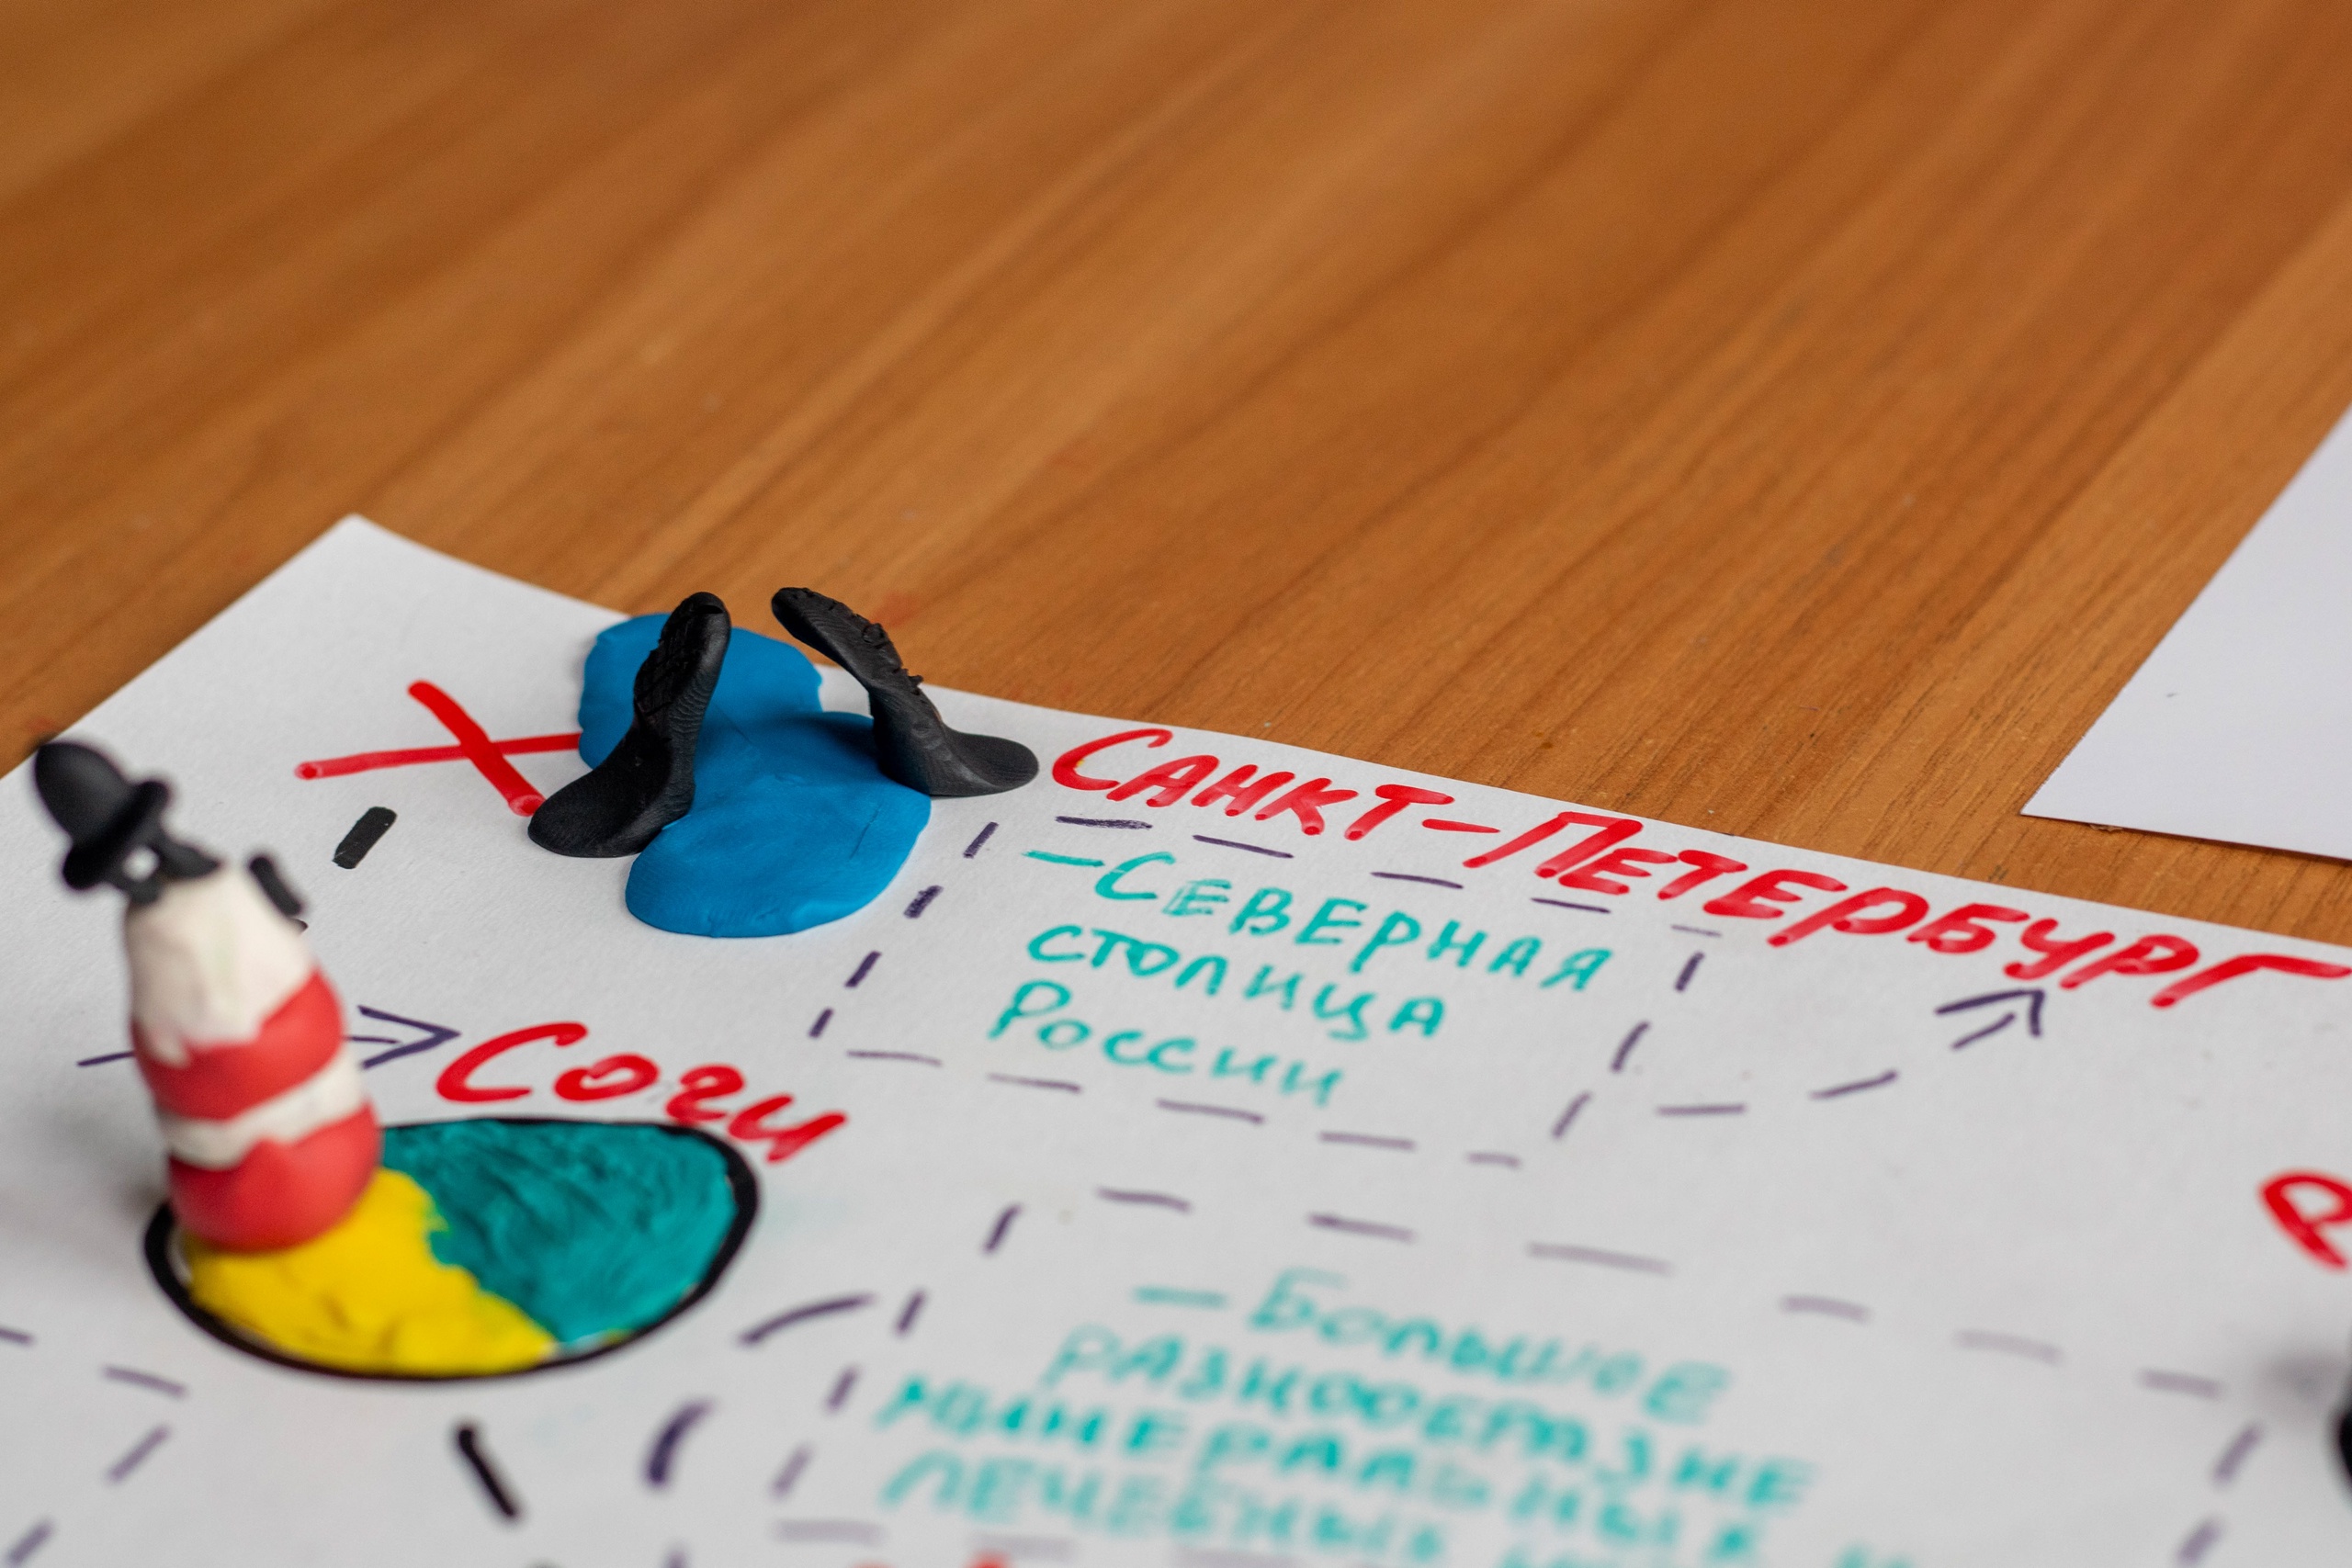 САНКТ-ПЕТЕРБУРГ
— СЕВЕРНАЯ
СТОЛИЦА
РОССИИ
Сочи
— БОЛЬШОЕ
РАЗНООБРАЗИЕ
МИНЕРАЛЬНЫХ
ЛЕЧЕБНЫХ